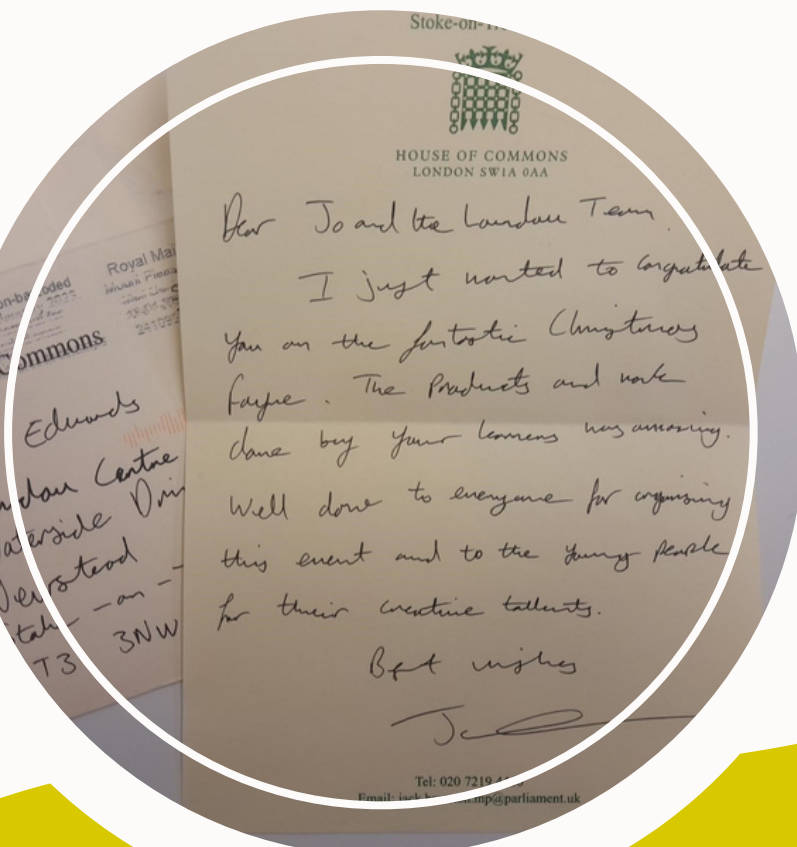 Stoke-on-
HOUSE OF COMMONS
LONDON SW1A 0AA
Dear Jo and the Landau Team,
I just wanted to congratulate
you on the fantastic Christmas
Fayre. The products and work
done by your learners was amazing.
Well done to everyone for organising
this event and to the young people
for their creative tallents.
Best wishes
Tel: 020 7219
Email: mp@parliament.uk
Royal Mai
on-barcoded
Commons
Edwards
ndau Centre
aterside
ewstead
toke-on-
T3 3NW